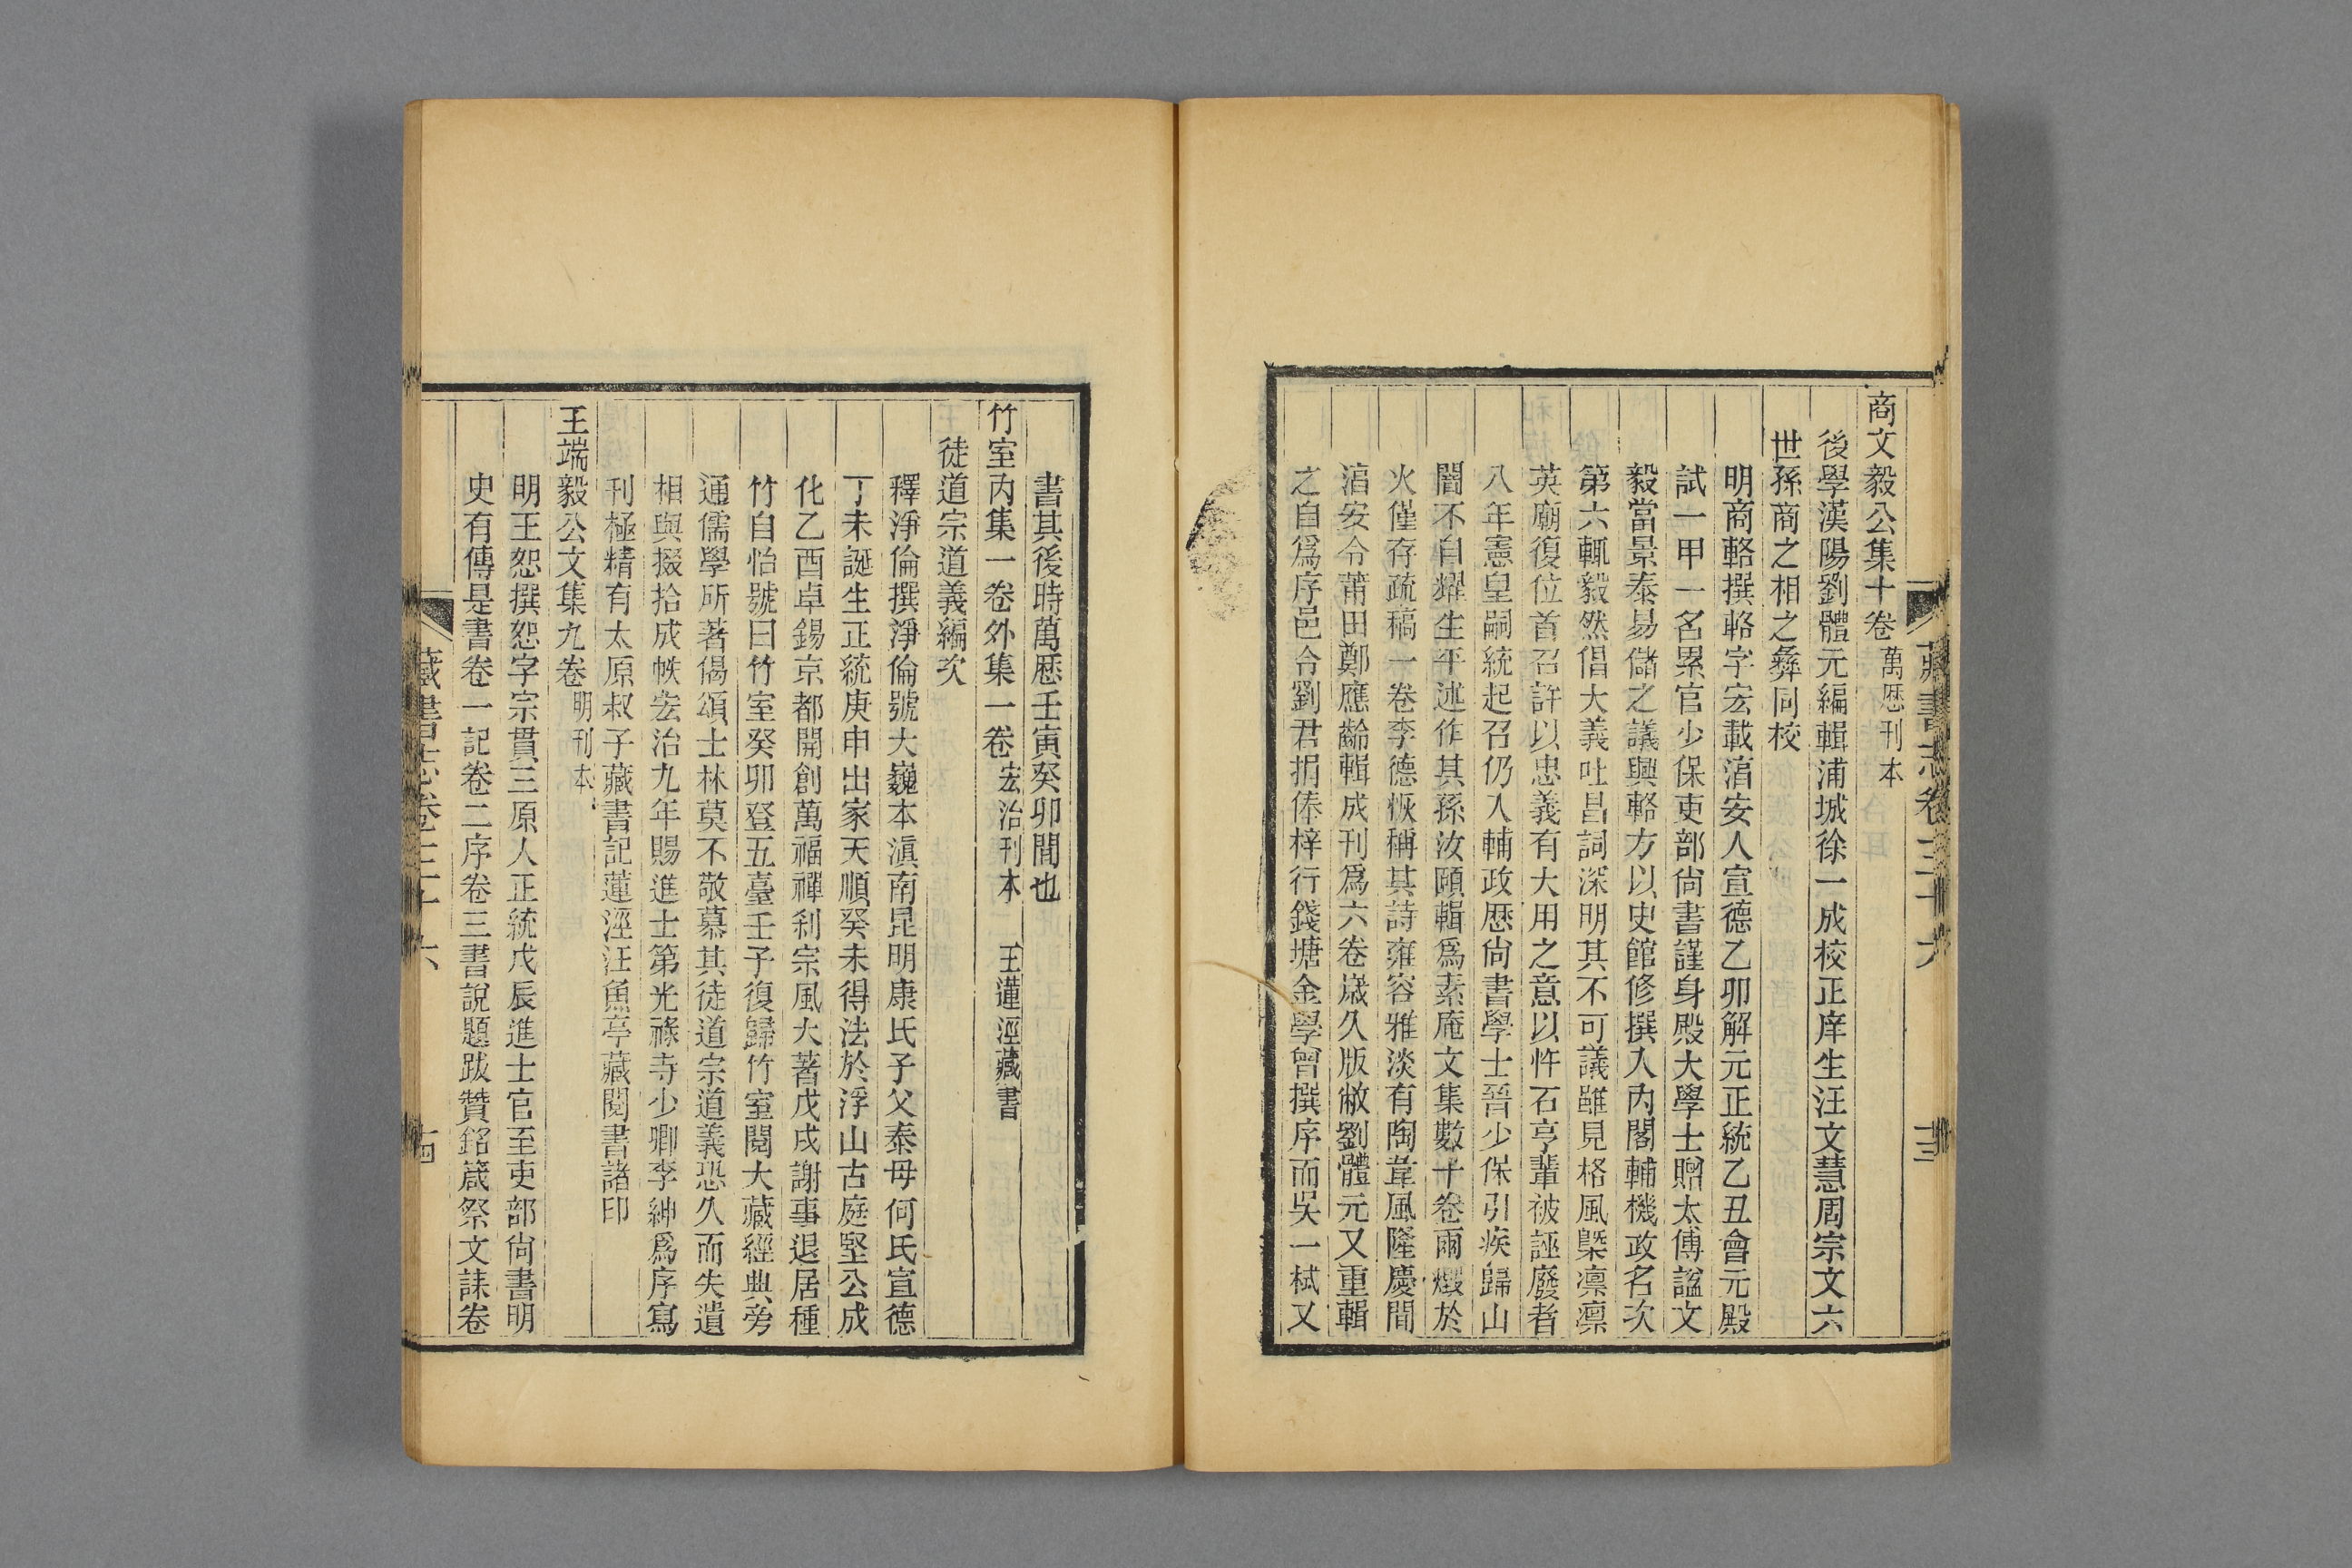 藏書志卷三十六
十三
商文毅公集十卷 萬厯刊本
後學漢陽劉體元編輯浦城徐一成校正庠生汪文慧周宗文六
世孫商之相之彝同校
明商輅撰輅字宏載湻安人宣德乙卯解元正統乙丑會元殿
試一甲一名累官少保吏部尙書謹身殿大學士贈太傅諡文
毅當景泰易儲之議興輅方以史館修撰入內閣輔機政名次
第六輒毅然倡大義吐昌詞深明其不可議雖見格風槩凛凛
英廟復位首召許以忠義有大用之意以忤石亨輩被誣廢者
八年憲皇嗣統起召仍入輔政歷尙書學士晉少保引疾歸山
闇不自耀生平述作其孫汝頤輯爲素庵文集數十卷兩燬於
火僅存疏稿一卷李德恢稱其詩雍容雅淡有陶韋風隆慶間
湻安令莆田鄭應齡輯成刊爲六卷歲久版敝劉體元又重輯
之自爲序邑令劉君捐俸梓行錢塘金學曾撰序而吳一栻又
書其後時萬厯壬寅癸卯間也
竹室內集一卷外集一卷 宏治刊本 王蓮涇藏書
徒道宗道義編次
釋淨倫撰淨倫號大巍本滇南昆明康氏子父泰母何氏宣德
丁未誕生正統庚申出家天順癸未得法於浮山古庭堅公成
化乙酉卓錫京都開創萬福禪刹宗風大著戊戌謝事退居種
竹自怡號曰竹室癸卯登五臺壬子復歸竹室閱大藏經典旁
通儒學所著偈頌士林莫不敬慕其徒道宗道義恐久而失遺
相與掇拾成帙宏治九年賜進士第光祿寺少卿李紳爲序寫
刊極精有太原叔子藏書記蓮涇汪魚亭藏閱書諸印
王端毅公文集九卷 明刊本
明王恕撰恕字宗貫三原人正統戊辰進士官至吏部尙書明
史有傳是書卷一記卷二序卷三書說題跋贊銘箴祭文誄卷
藏書志卷三十六
十四